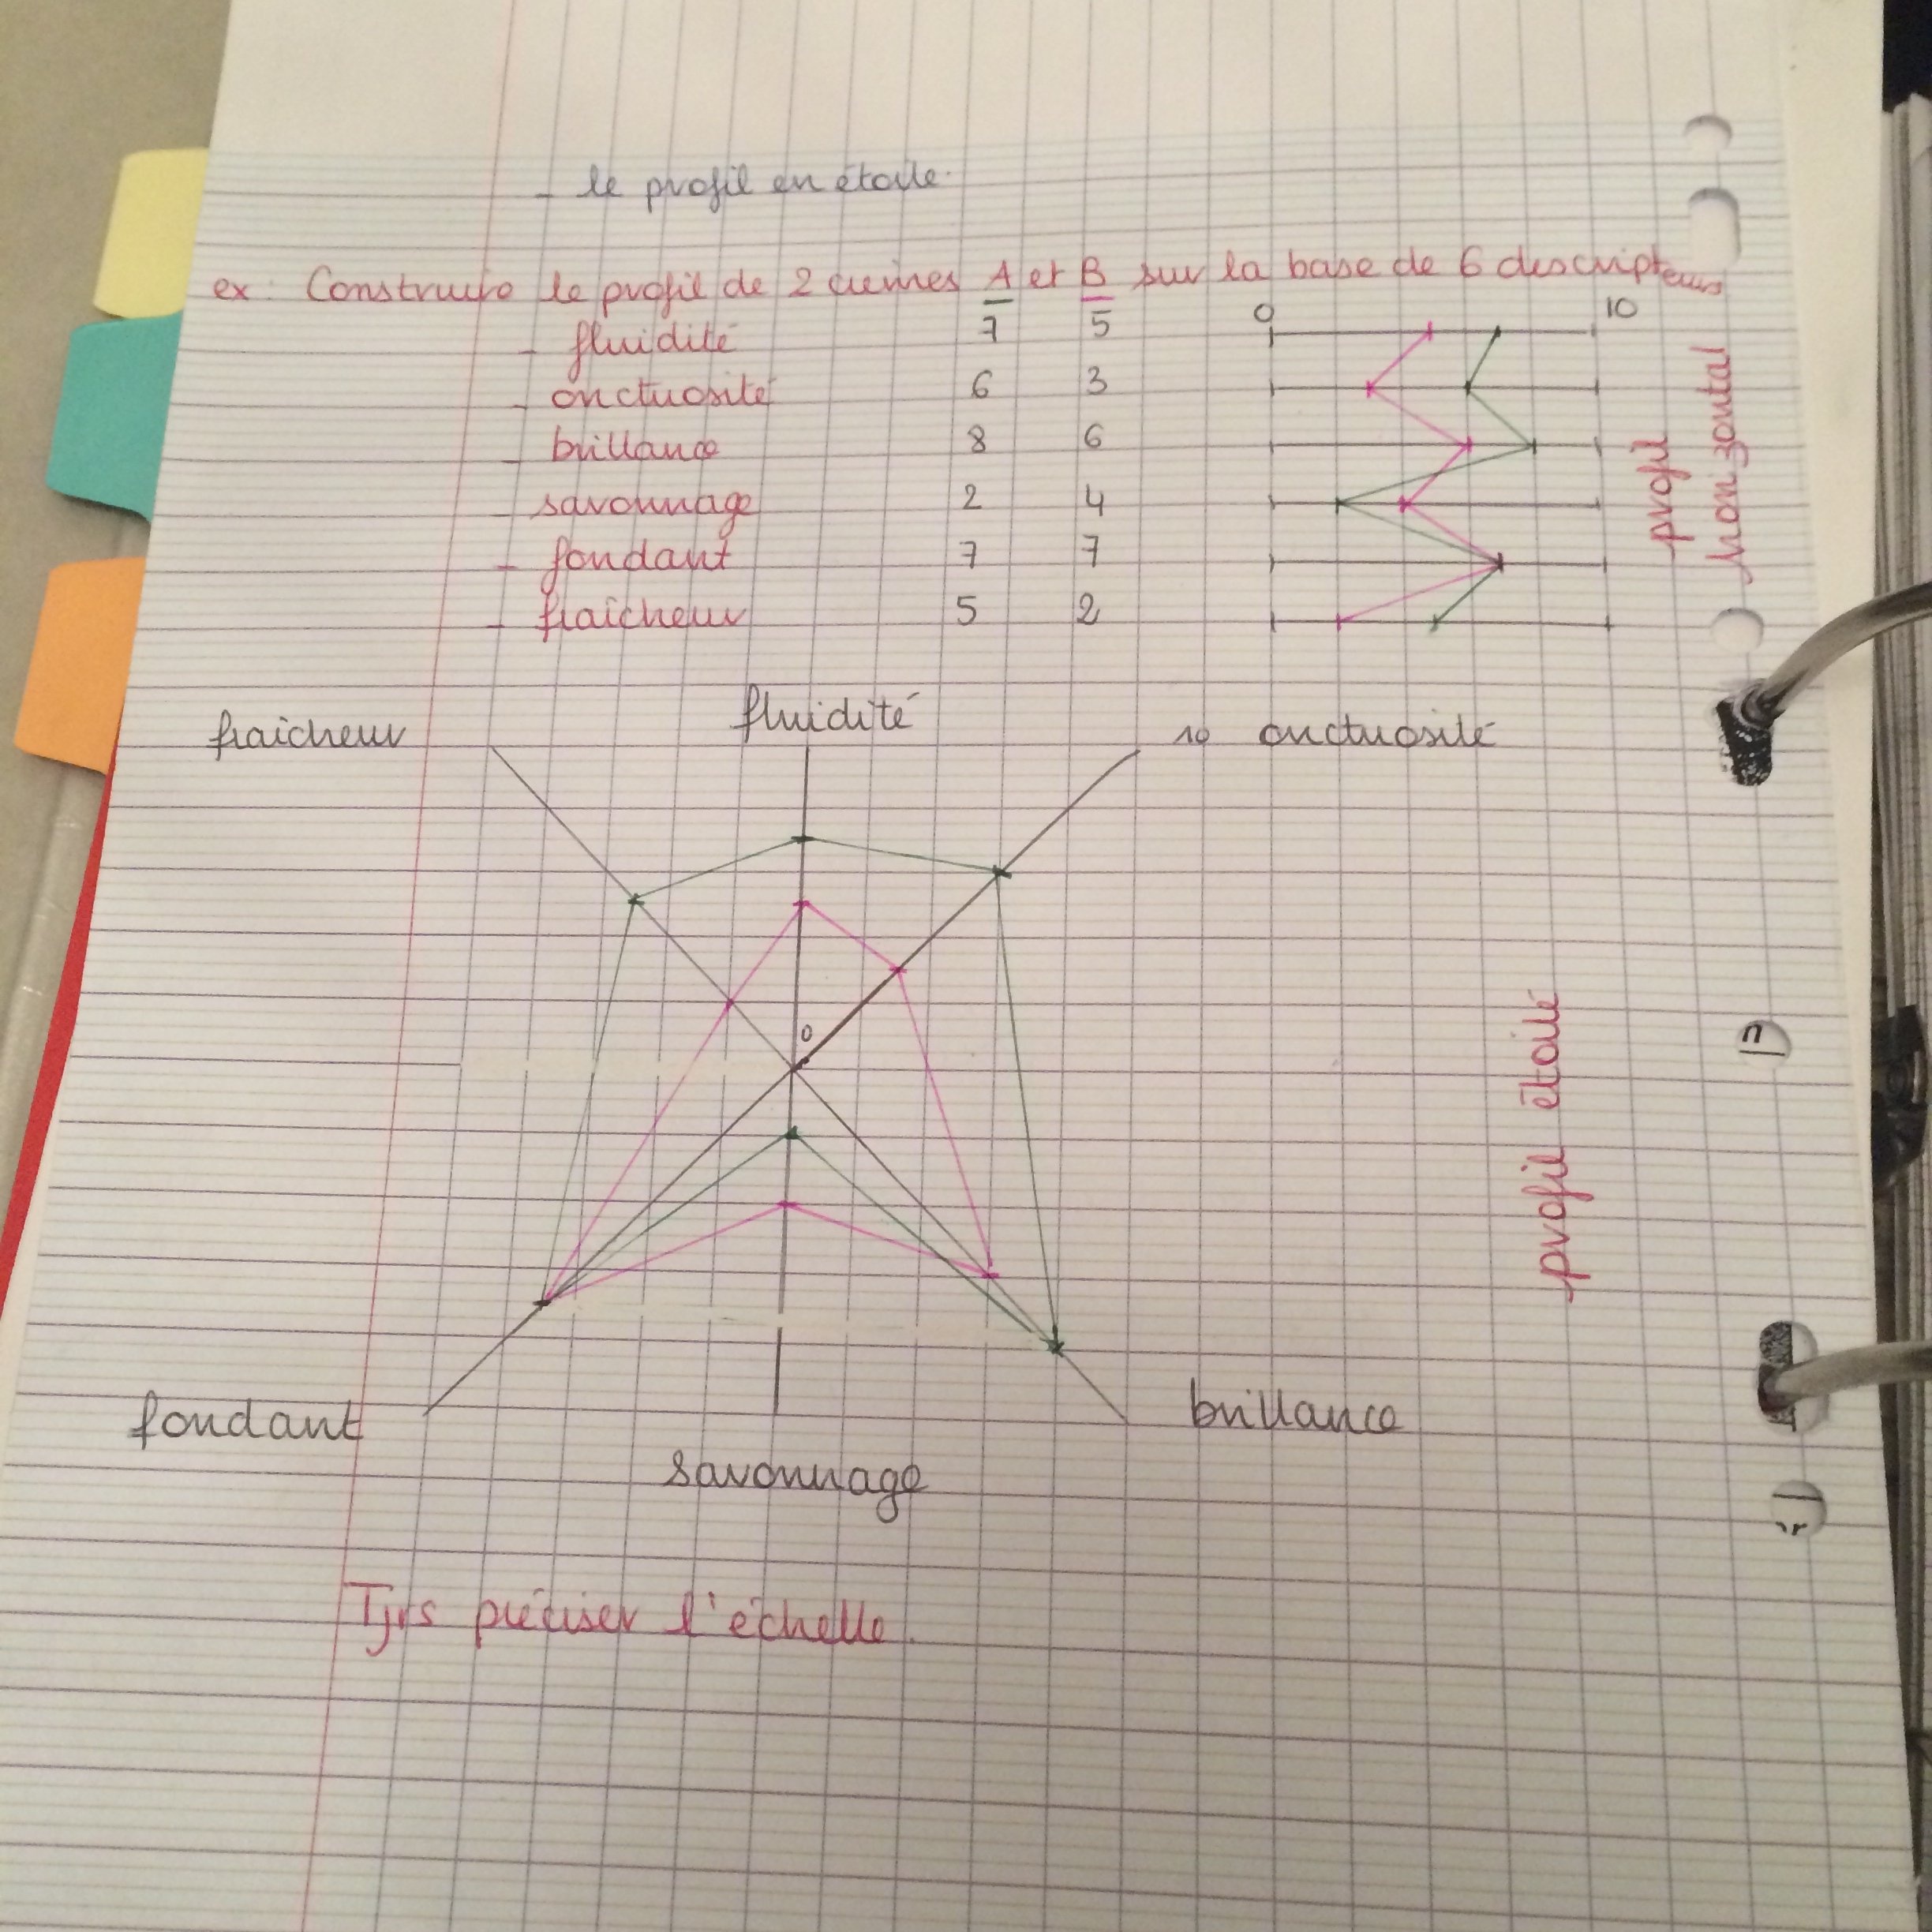 - le profil en étoile.
ex: Construire le profil de 2 crèmes A et B sur la base de 6 descripteurs
- fluidité 7 5 0 10
- onctuosité 6 3
- brillance 8 6
- savonnage 2 4
- fondant 7 7
- fraicheur 5 2
profil
horizontal
fraicheur fluidité 10 onctuosité
0
profil étoile
fondant brillance
savonnage
Tjrs préciser l'échelle.